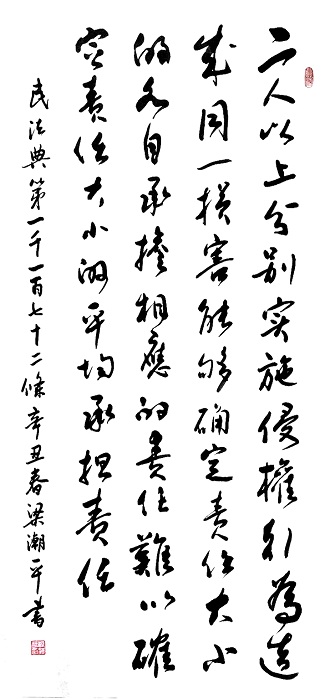 二人以上分别实施侵權行為造
成同一损害能够确定责任大小
的各自承擔相應的责任難以確
定责任大小的平均承担责任
民法典第一千一百七十二條辛丑春梁潮平書